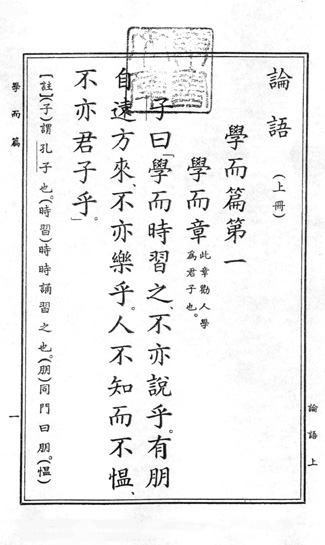 論語(上冊)
學而篇第一
學而章
此章勸人學
為君子也。
子曰「學而時習之、不亦說乎。有朋
自遠方來、不亦樂乎。人不知而不慍、
不亦君子乎。」
【註】(子)謂孔子也。(時習)時時誦習之也。(朋)同門曰朋。(慍)
論語上
學而篇
一